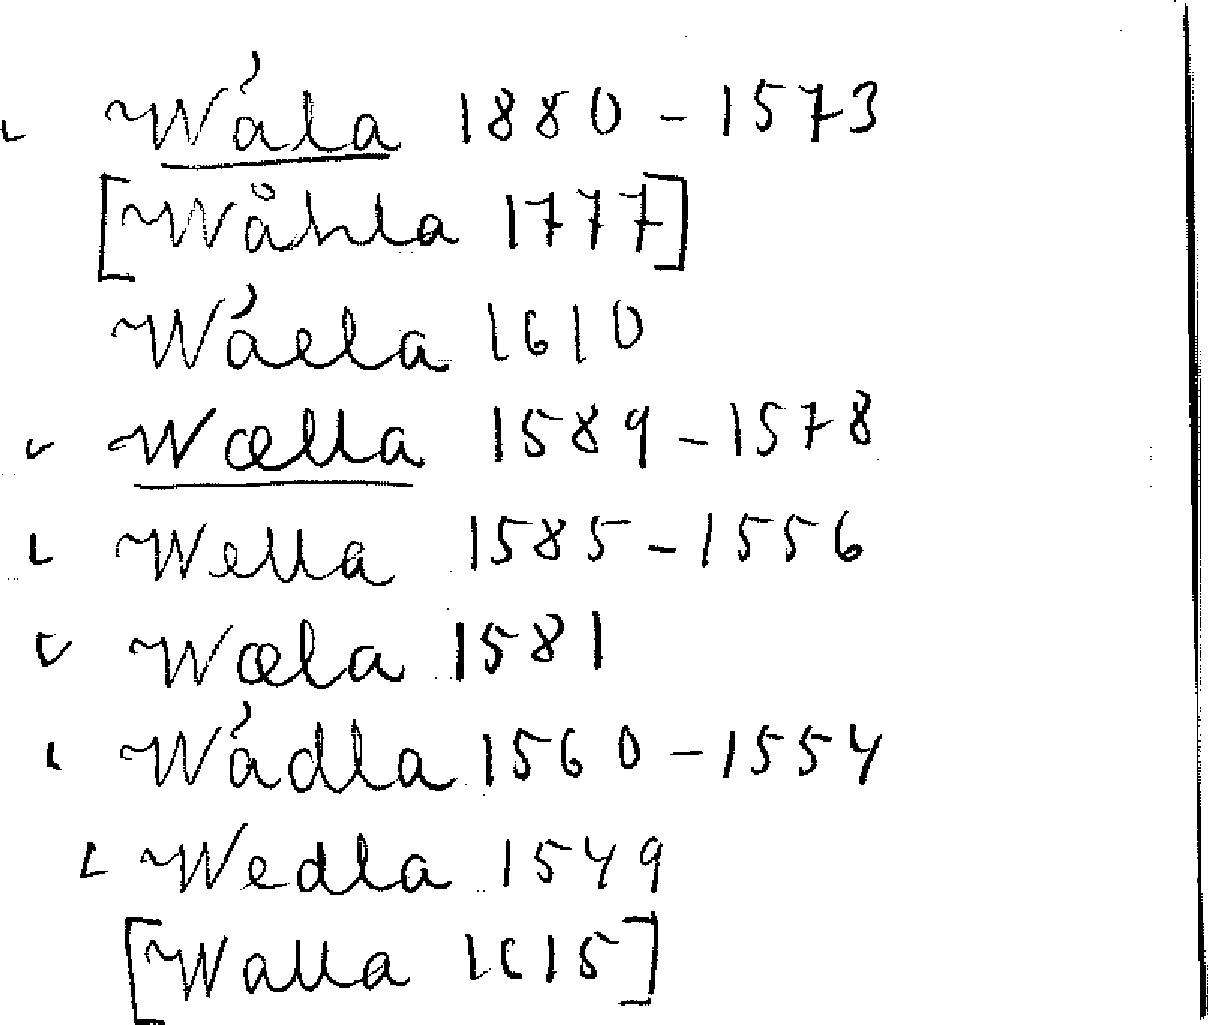 Wála 1880-1573
[Wåhla 1777]
Wáela 1610
Wælla 1589-1578
Wella 1585-1556
Wæla 1581
Wádla 1560-1554
Wedla 1549
[Walla 1615]